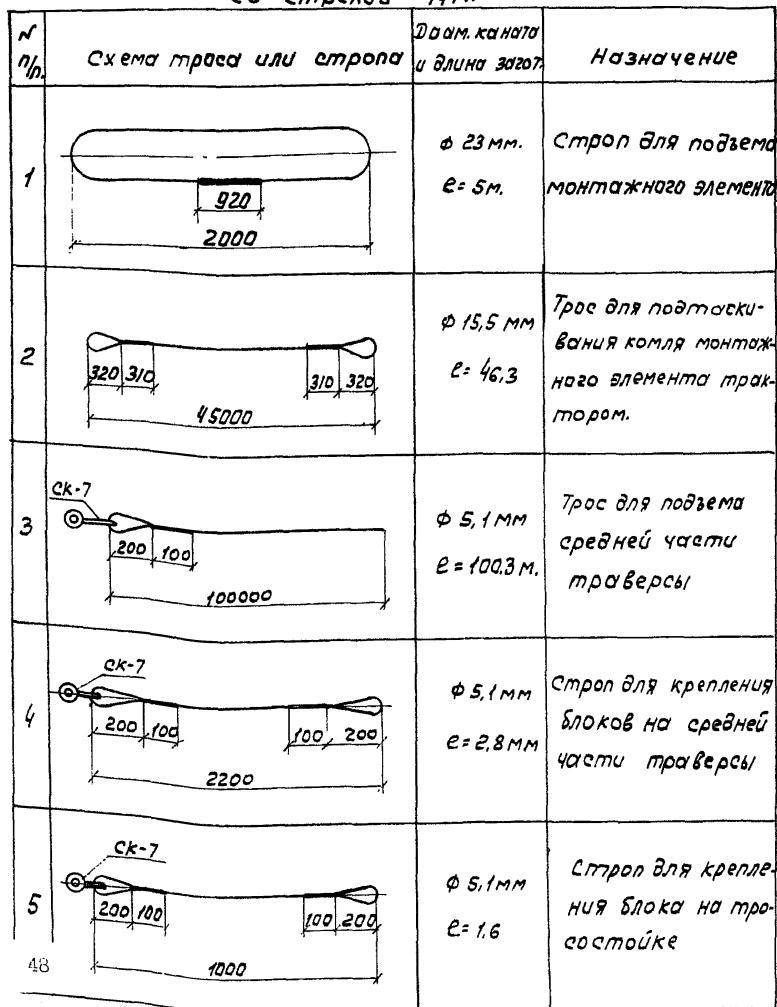 со стрелой
N п/п.
Схема троса или стропа
Диам. каната и длина загот.
Назначение
1
920
2000
ф 23 мм.
ℓ= 5м.
Строп для подъема
монтажного элемента
2
320 310 310 320
45000
ф 15,5 мм
ℓ= 46,3
Трос для подтаски-
вания комля монтаж-
ного элемента трак-
тором.
3
СК-7
200 100
100000
ф 5,1 мм
ℓ = 100,3 м.
Трос для подъема
средней части
траверсы
4
СК-7
200 100 100 200
2200
ф 5,1 мм
ℓ= 2,8 мм
Строп для крепления
блоков на средней
части траверсы
5
СК-7
200 100 100 200
1000
ф 5,1 мм
ℓ= 1,6
Строп для крепле-
ния блока на тро-
состойке
48